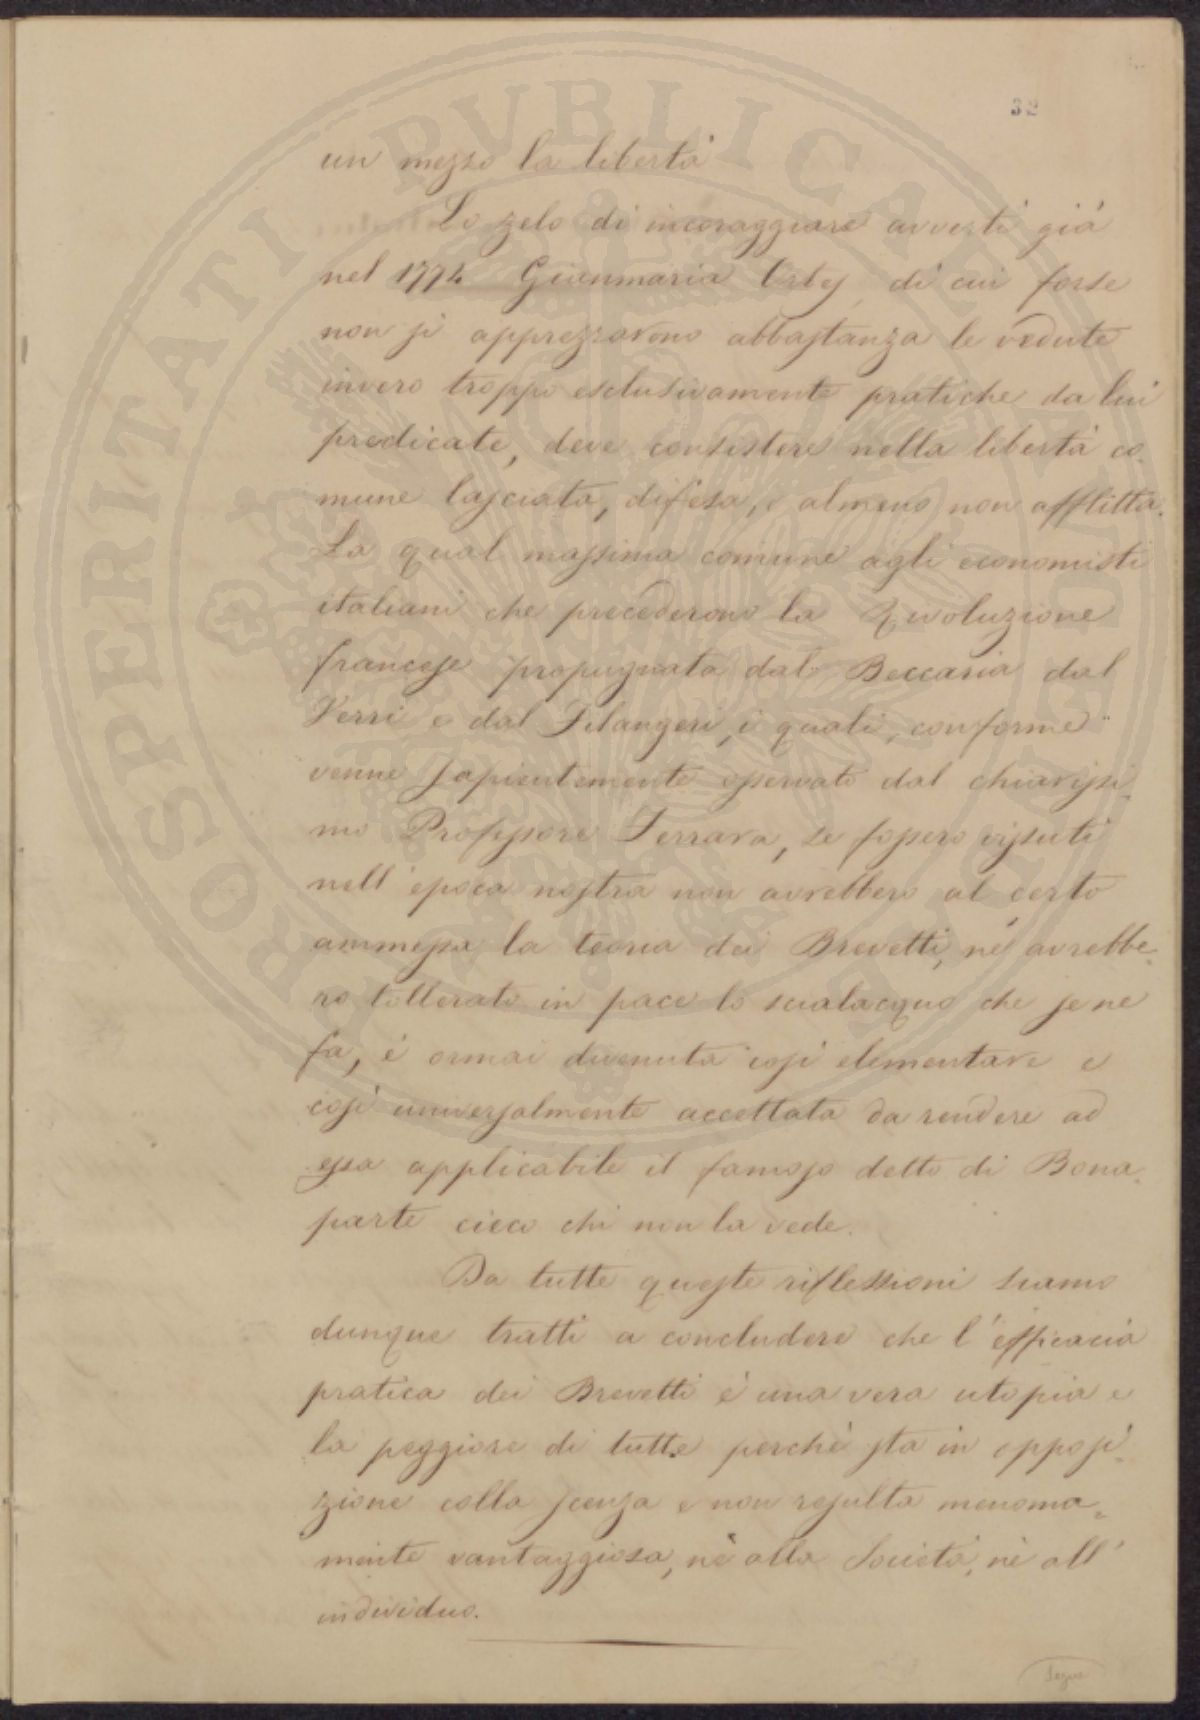 32
un mezzo la libertà
Lo zelo di incoraggiare avvertì già
nel 1774 Gianmaria Ortes, di cui forse
non si apprezzarono abbastanza le vedute
invero troppo esclusivamente pratiche da lui
predicate, deve consistere nella libertà co-
mune lasciata, difesa, o almeno non afflitta.
La qual massima comune agli economisti
italiani che precederono la Rivoluzione
francese propugnata dal Beccaria dal
Verri e dal Filangeri, i quali, conforme
venne sapientemente osservato dal chiarissi-
mo Professore Ferrara, se fossero vissuti
nell'epoca nostra non avrebbero al certo
ammessa la teoria dei Brevetti, nè avrebbe-
ro tollerato in pace lo scialacquo che se ne
fa, è ormai divenuta così elementare e
così universalmente accettata da rendere ad
essa applicabile il famoso detto di Bona-
parte cieco chi non la vede.
Da tutte queste riflessioni siamo
dunque tratti a concludere che l'efficacia
pratica dei Brevetti è una vera utopia e
la peggiore di tutte perchè sta in opposi-
zione colla scenza e non resulta menoma-
mente vantaggiosa, nè alla Società, nè all'
individuo.
Segue
PROSPERITATI PVBLICAE